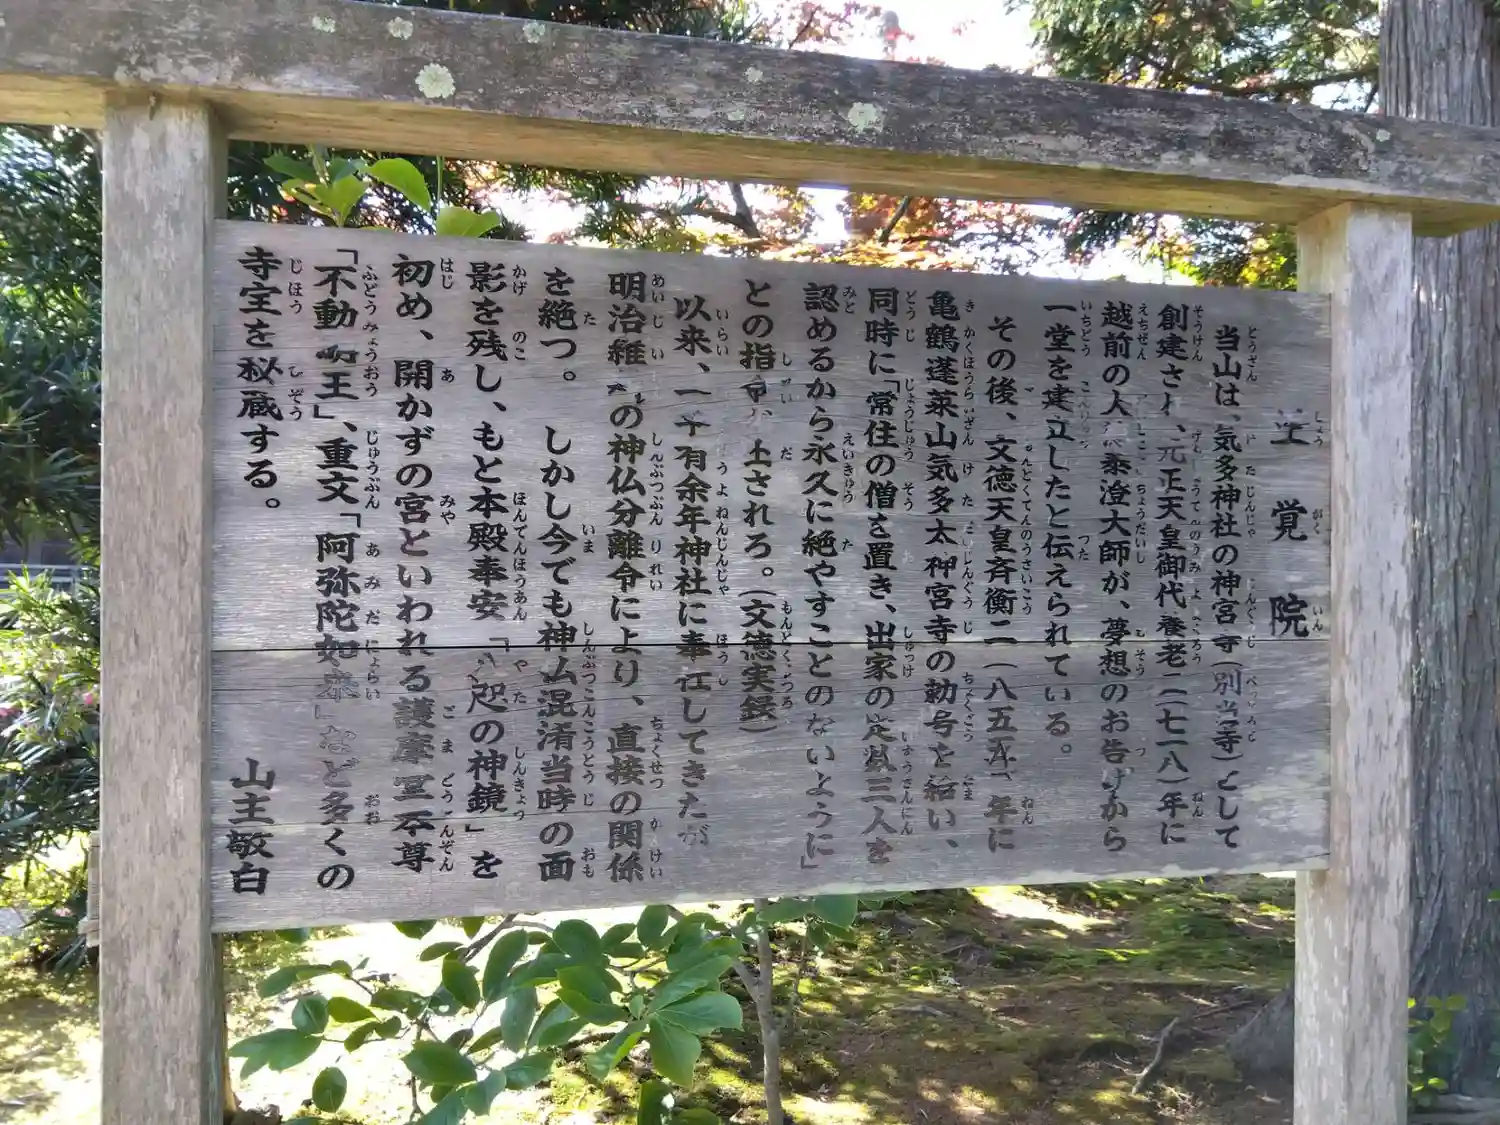 正覚院
当山は、気多神社の神宮寺(別当寺)として
創建され、元正天皇御代養老二(七一八)年に
越前の人 泰澄大師が、夢想のお告げから
一堂を建立したと伝えられている。
その後、文徳天皇斉衡二(八五五)年に
亀鶴蓬莱山気多太神宮寺の勅号を給い、
同時に「常住の僧を置き、出家の定数三人を
認めるから永久に絶やすことのないように」
との指 されろ。(文徳実録)
以来、一千有余年神社に奉仕してきたが
明治維 の神仏分離令により、直接の関係
を絶つ。しかし今でも神仏混淆当時の面
影を残し、もと本殿奉安「八咫の神鏡」を
初め、開かずの宮といわれる護摩堂本尊
「不動明王」、重文「阿弥陀如来」など多くの
寺宝を秘蔵する。
山主敬白